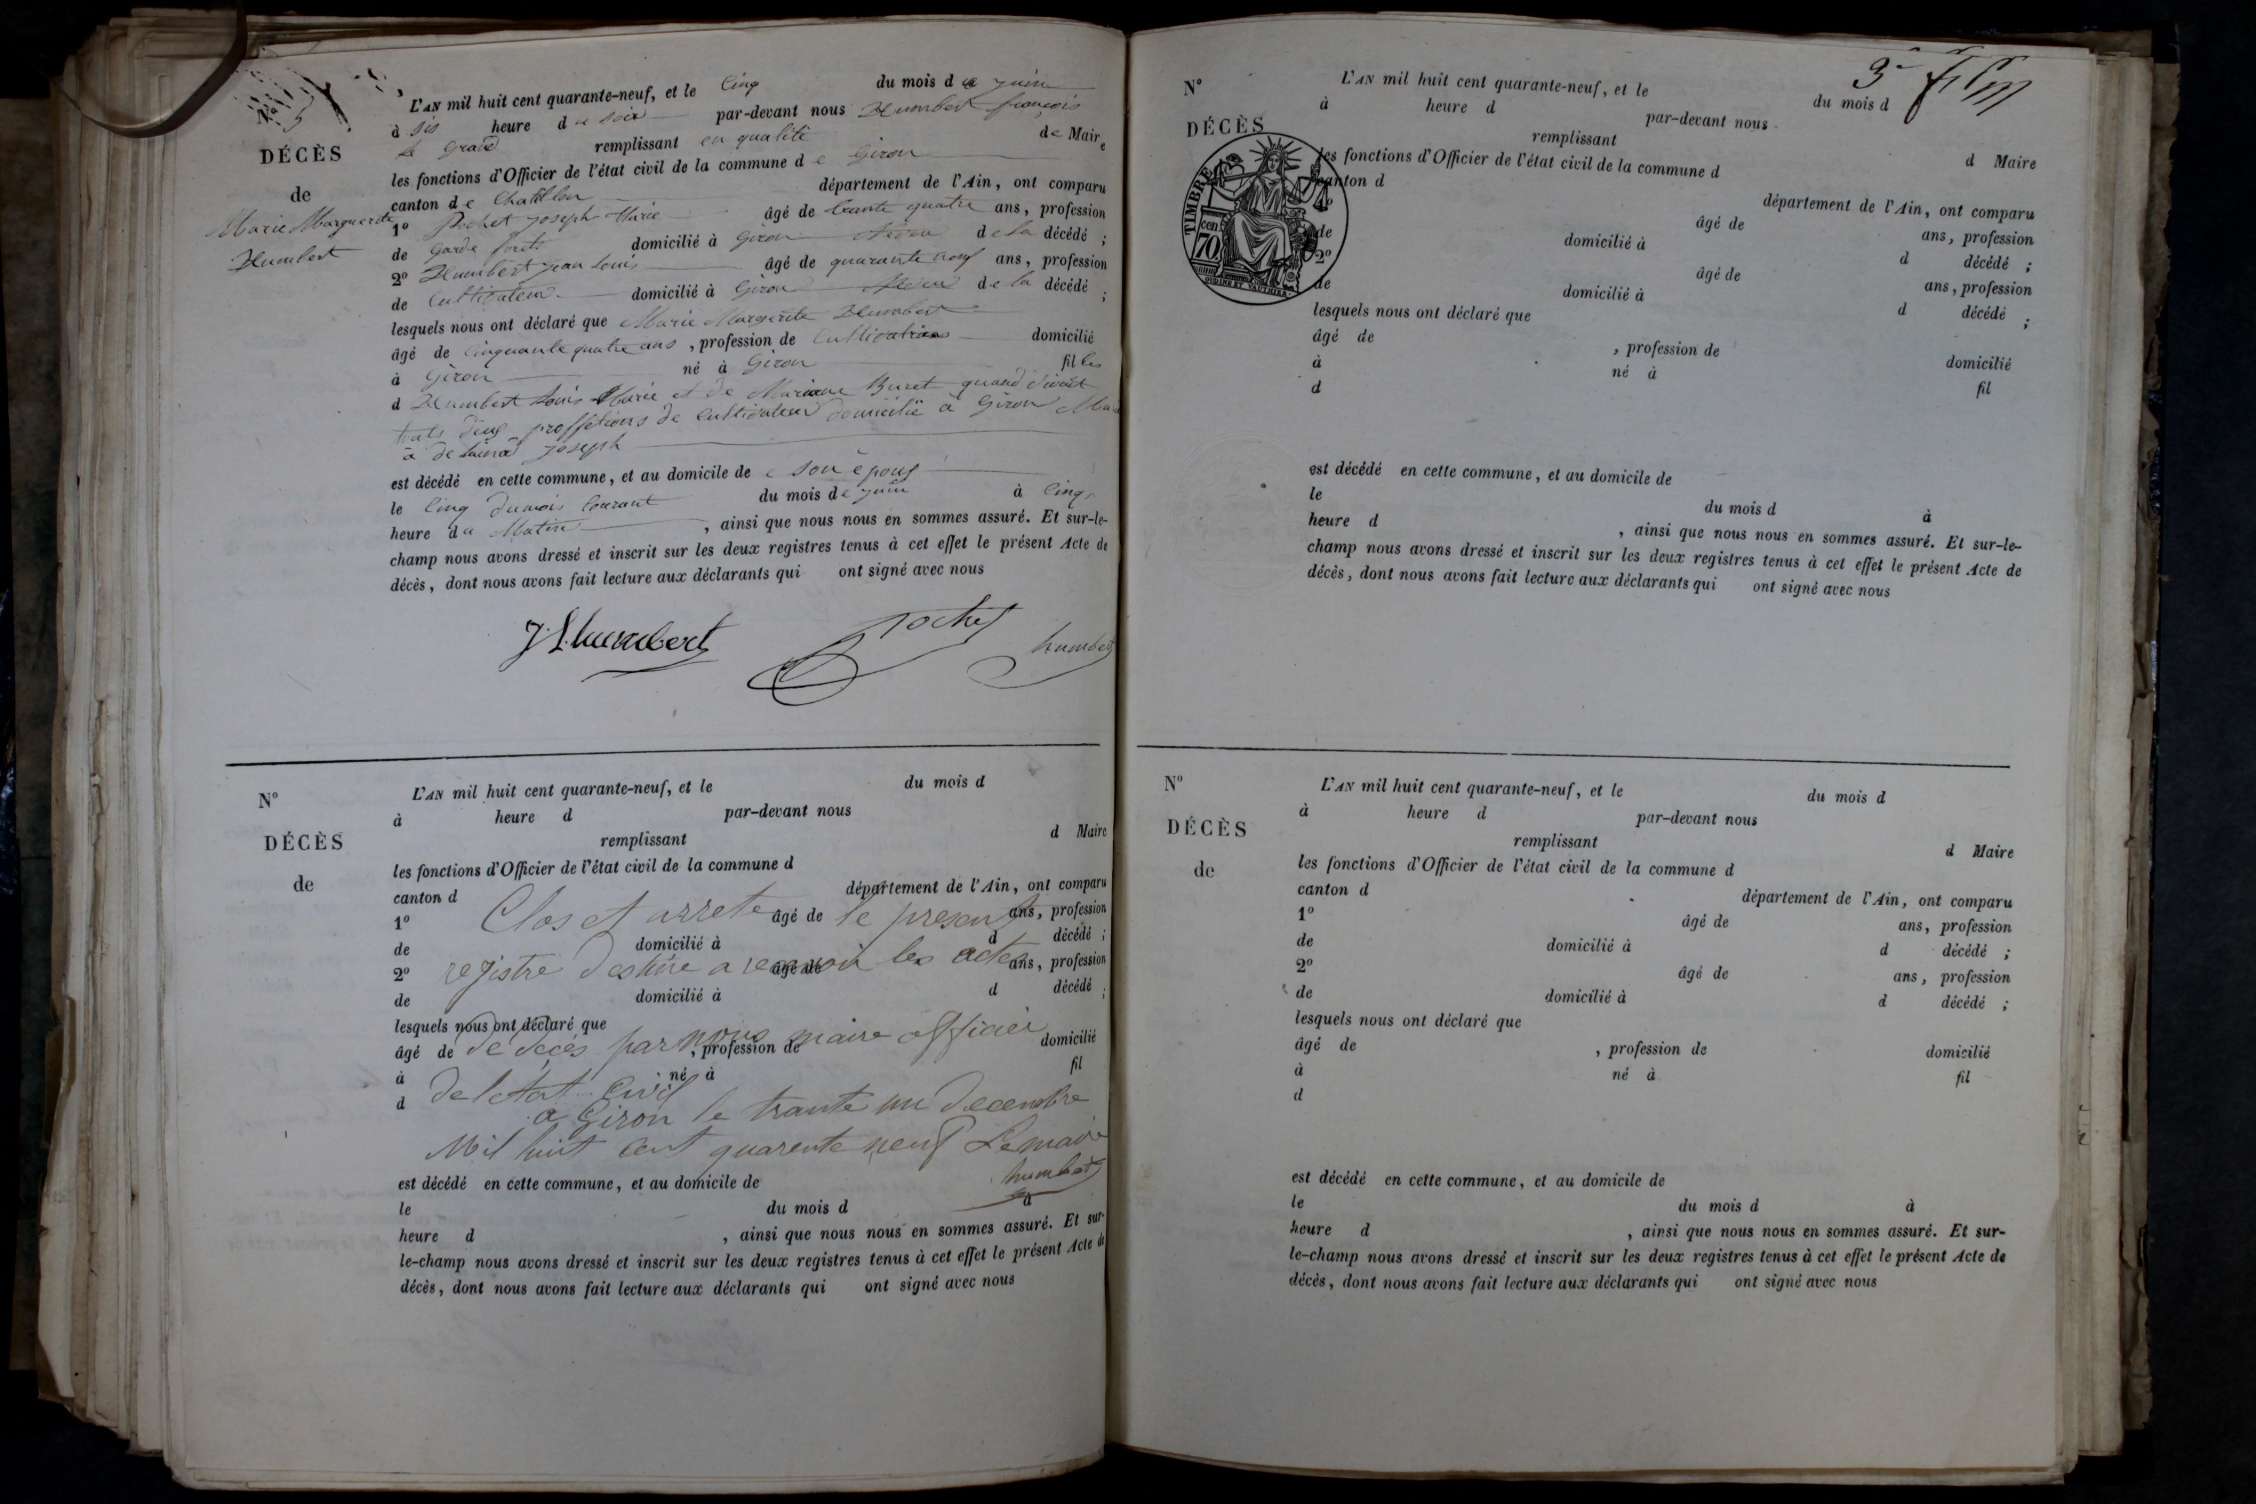 N° 5
DÉCÈS
de
Marie Marguerite
Humbert
L'AN mil huit cent quarante-neuf, et le Cinq du mois de juin
à sis heure du soir par-devant nous Humbert françois
le Grand remplissant en qualité de Maire
les fonctions d'Officier de l'état civil de la commune de Giron
canton de Chatillon département de l'Ain, ont comparu
1° Pochet Joseph Marie âgé de trante quatre ans, profession
de garde forêt domicilié à Giron de la décédé ;
2° Humbert jean Louis âgé de quarante neuf ans, profession
de Cultivateur domicilié à Giron de la décédé ;
lesquels nous ont déclaré que Marie Margerite Humbert
âgé de Cinquante quatre ans , profession de Cultivatrice domicilié
à Giron né à Giron filles
d Humbert Louis Marie et de Mariane Buret quand vivait
touts deux proffétions de Cultivateur domicilié à Giron
à Joseph
est décédé en cette commune, et au domicile de son époux
le Cinq du mois Courant du mois de juin à Cinq
heure du Matin , ainsi que nous nous en sommes assuré. Et sur-le-
champ nous avons dressé et inscrit sur les deux registres tenus à cet effet le présent Acte de
décès, dont nous avons fait lecture aux déclarants qui ont signé avec nous
J. L. humbert Pochet humbert
N°
DÉCÈS
de
L'AN mil huit cent quarante-neuf, et le du mois d
à heure d par-devant nous
remplissant d Maire
les fonctions d'Officier de l'état civil de la commune d
canton d département de l'Ain, ont comparu
1° âgé de ans, profession
de domicilié à d décédé ;
2° âgé de ans, profession
de domicilié à d décédé ;
lesquels nous ont déclaré que
âgé de , profession de domicilié
à né à fil
d
Clos et arrete le present
registre destine a recevoir les actes
de décès par nous maire officier
de letat Civil
a Giron le trante un decembre
Mil huit cent quarente neuf Le maire
humbert
est décédé en cette commune, et au domicile de
le du mois d à
heure d , ainsi que nous nous en sommes assuré. Et sur-
le-champ nous avons dressé et inscrit sur les deux registres tenus à cet effet le présent Acte de
décès, dont nous avons fait lecture aux déclarants qui ont signé avec nous
3e
N°
DÉCÈS
TIMBRE
70 cen
L'AN mil huit cent quarante-neuf, et le du mois d
à heure d par-devant nous
remplissant d Maire
les fonctions d'Officier de l'état civil de la commune d
canton d département de l'Ain, ont comparu
âgé de ans, profession
de domicilié à d décédé ;
2° âgé de ans, profession
de domicilié à d décédé ;
lesquels nous ont déclaré que
âgé de , profession de domicilié
à né à fil
d
est décédé en cette commune, et au domicile de
le du mois d à
heure d , ainsi que nous nous en sommes assuré. Et sur-le-
champ nous avons dressé et inscrit sur les deux registres tenus à cet effet le présent Acte de
décès, dont nous avons fait lecture aux déclarants qui ont signé avec nous
N°
DÉCÈS
de
L'AN mil huit cent quarante-neuf, et le du mois d
à heure d par-devant nous
remplissant d Maire
les fonctions d'Officier de l'état civil de la commune d
canton d département de l'Ain, ont comparu
1° âgé de ans, profession
de domicilié à d décédé ;
2° âgé de ans, profession
de domicilié à d décédé ;
lesquels nous ont déclaré que
âgé de , profession de domicilié
à né à fil
d
est décédé en cette commune, et au domicile de
le du mois d à
heure d , ainsi que nous nous en sommes assuré. Et sur-
le-champ nous avons dressé et inscrit sur les deux registres tenus à cet effet le présent Acte de
décès, dont nous avons fait lecture aux déclarants qui ont signé avec nous